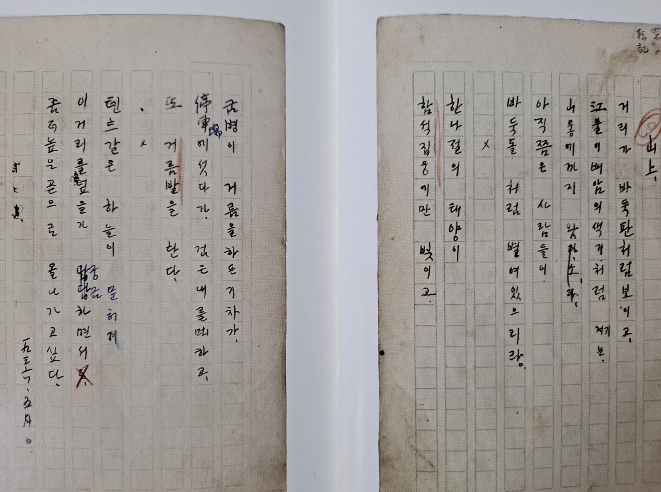 山上.
거리가 바둑판처럼보이고,
江물이배암의색기처럼 기는
山우에까지 왔다.
아직쯤은 사람들이
바둑돌 처럼 별여있으리라.
×
한나절의 태양이
함석집웅에만 빛이고,
굼병이 거름을하든기차가,
停車場에섯다가, 검은내를吐하고,
또 거름발을 한다.
×
텐트같은 하늘이 문허저
이거리를덮을가 궁금하면서
좀더높은곧으로 올나가고싶다.
一九三六. 五月.